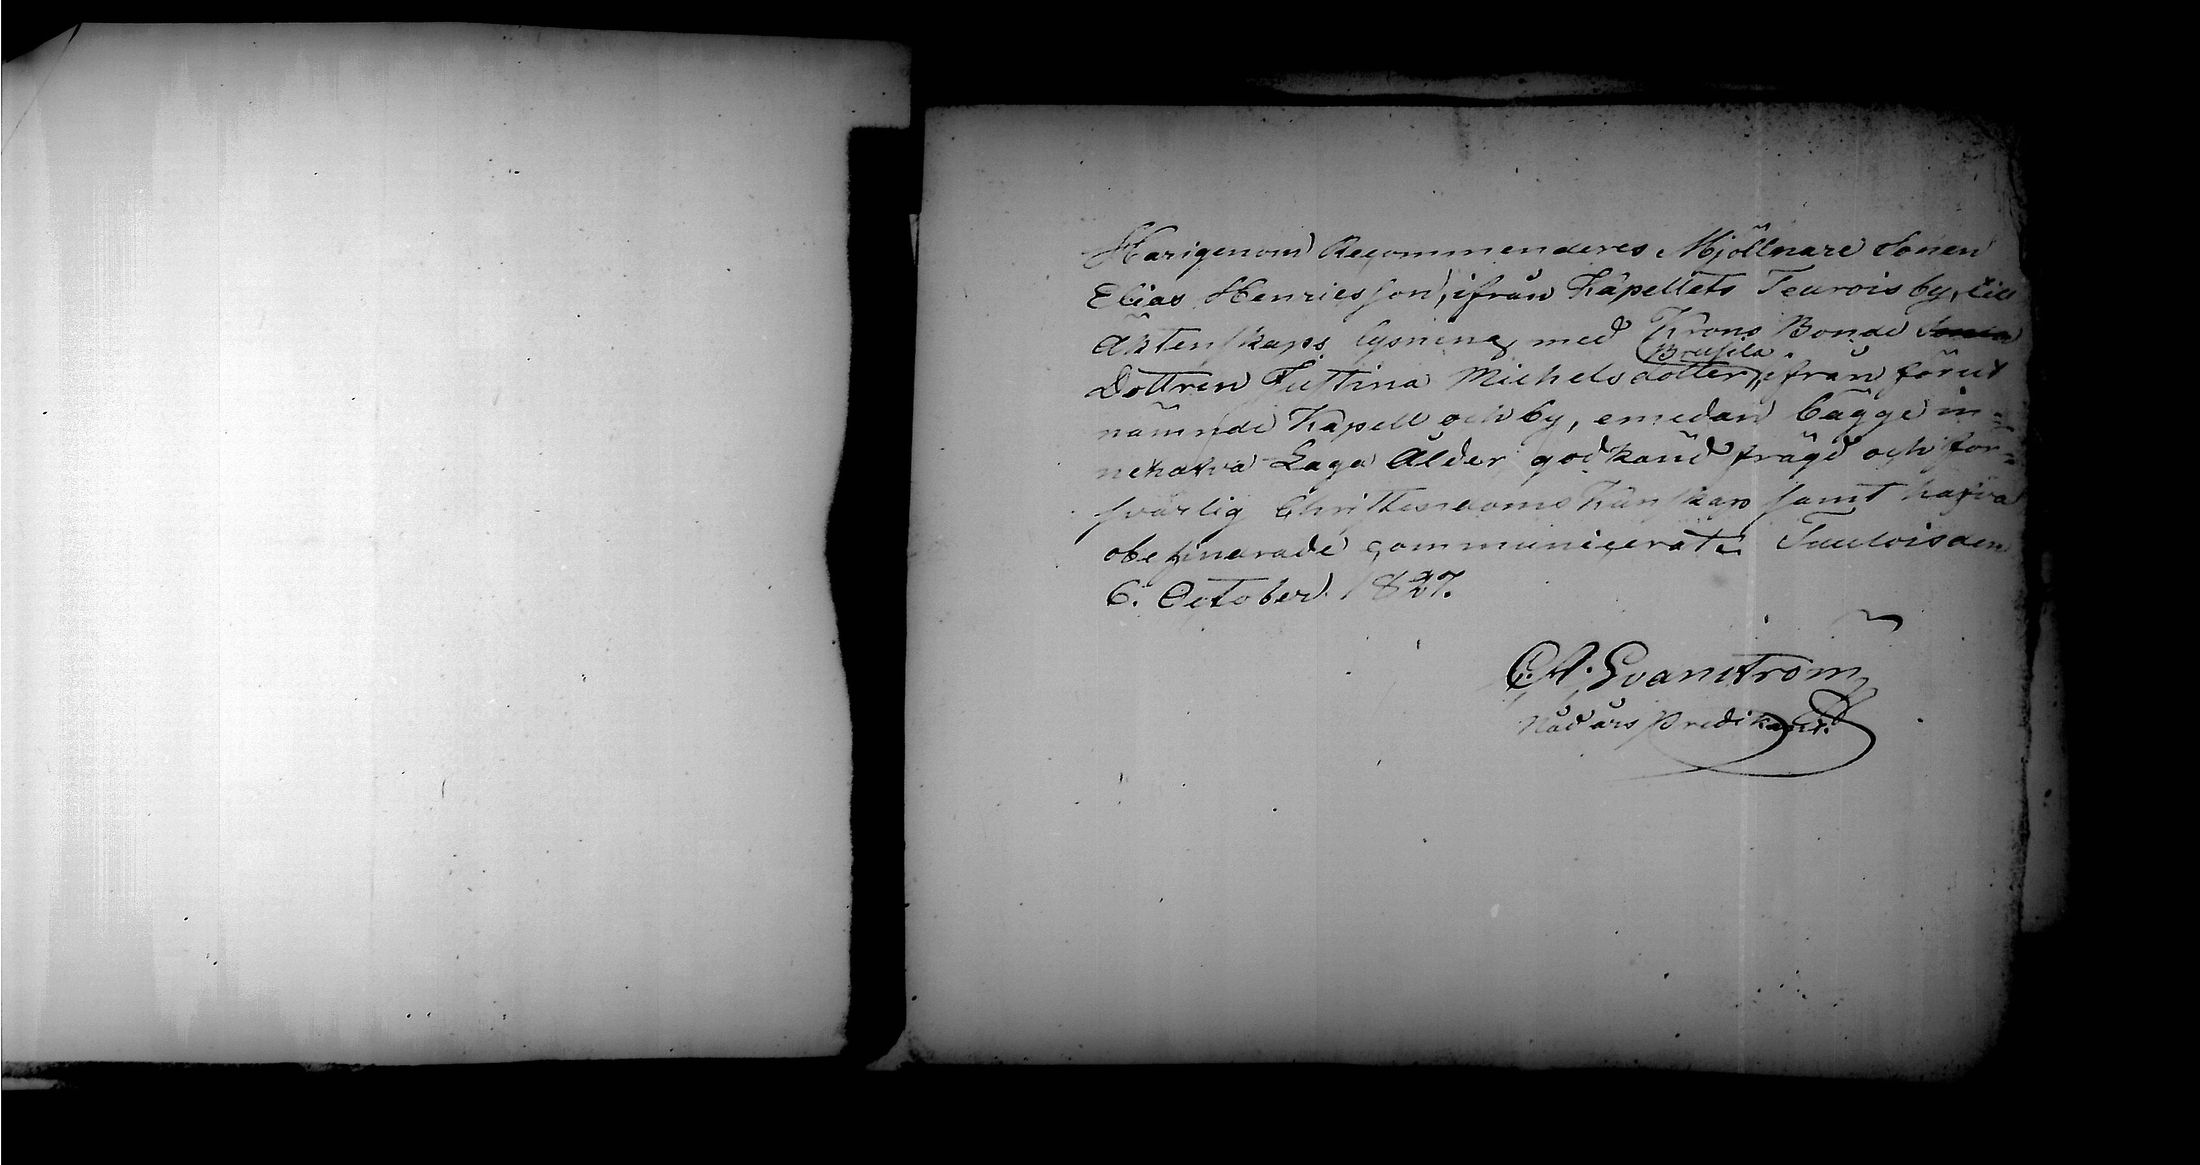 Harigenom Recommenderes Mjöllnare Sonen
Elias Henricsson, ifrån Kapellets Teurois by, till
Äktenskaps lysning med Krons Bonde
Brusila
Dottren Justina Michelsdotter, ifrån förut
nämnde Kapell och by, emedan bägge in-
nehafva Laga Ålder godkänd frägd och för-
svarlig Christendoms Kunskap samt hafva
obehindrade communicerat. Teuvois den
6. October 1827.
C. A. Svanström
Nådårs Predikant.